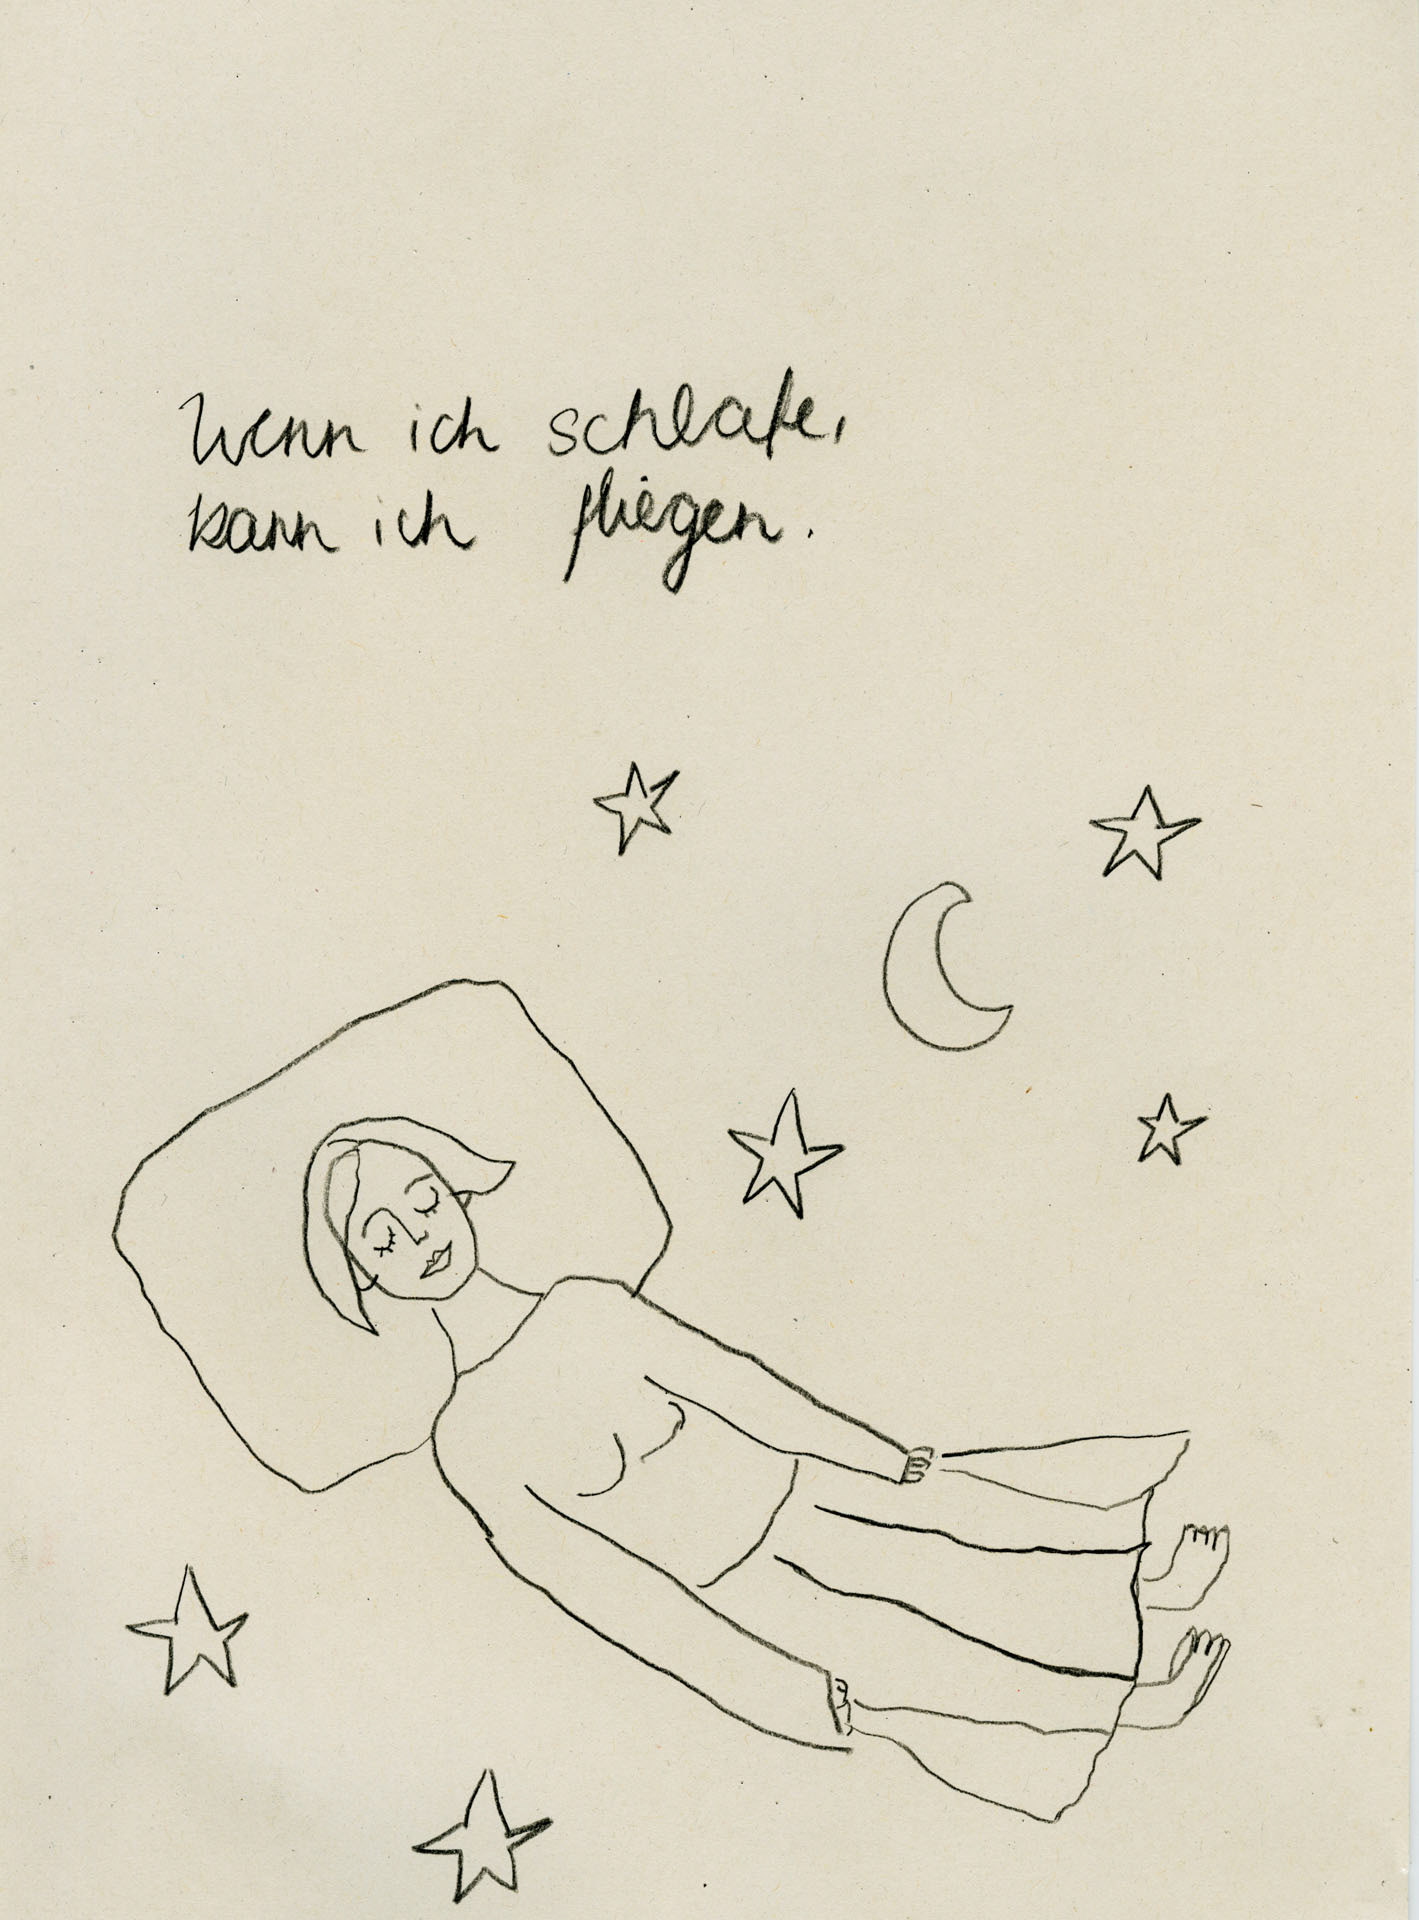 Wenn ich schlafe,
kann ich fliegen.